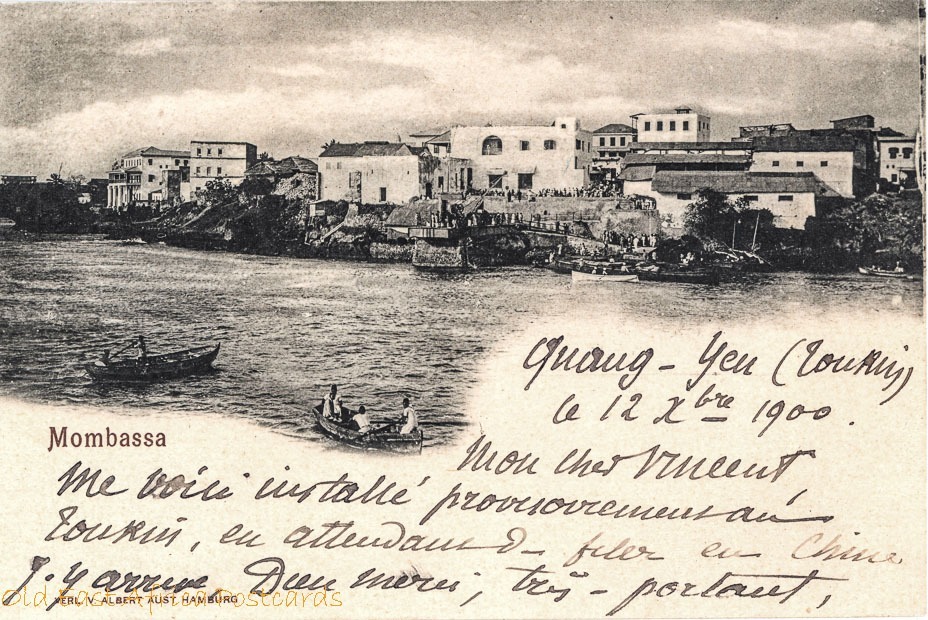 Quang-Yen (Tonkin)
le 12 Xbre 1900.
Mombassa
Mon cher Vincent,
Me voici installé provisoirement au
Tonkin, en attendant d- filer en Chine
J'y arrive Dieu merci, très-portant,
VERL. V. ALBERT AUST, HAMBURG
Old East Africa Postcards